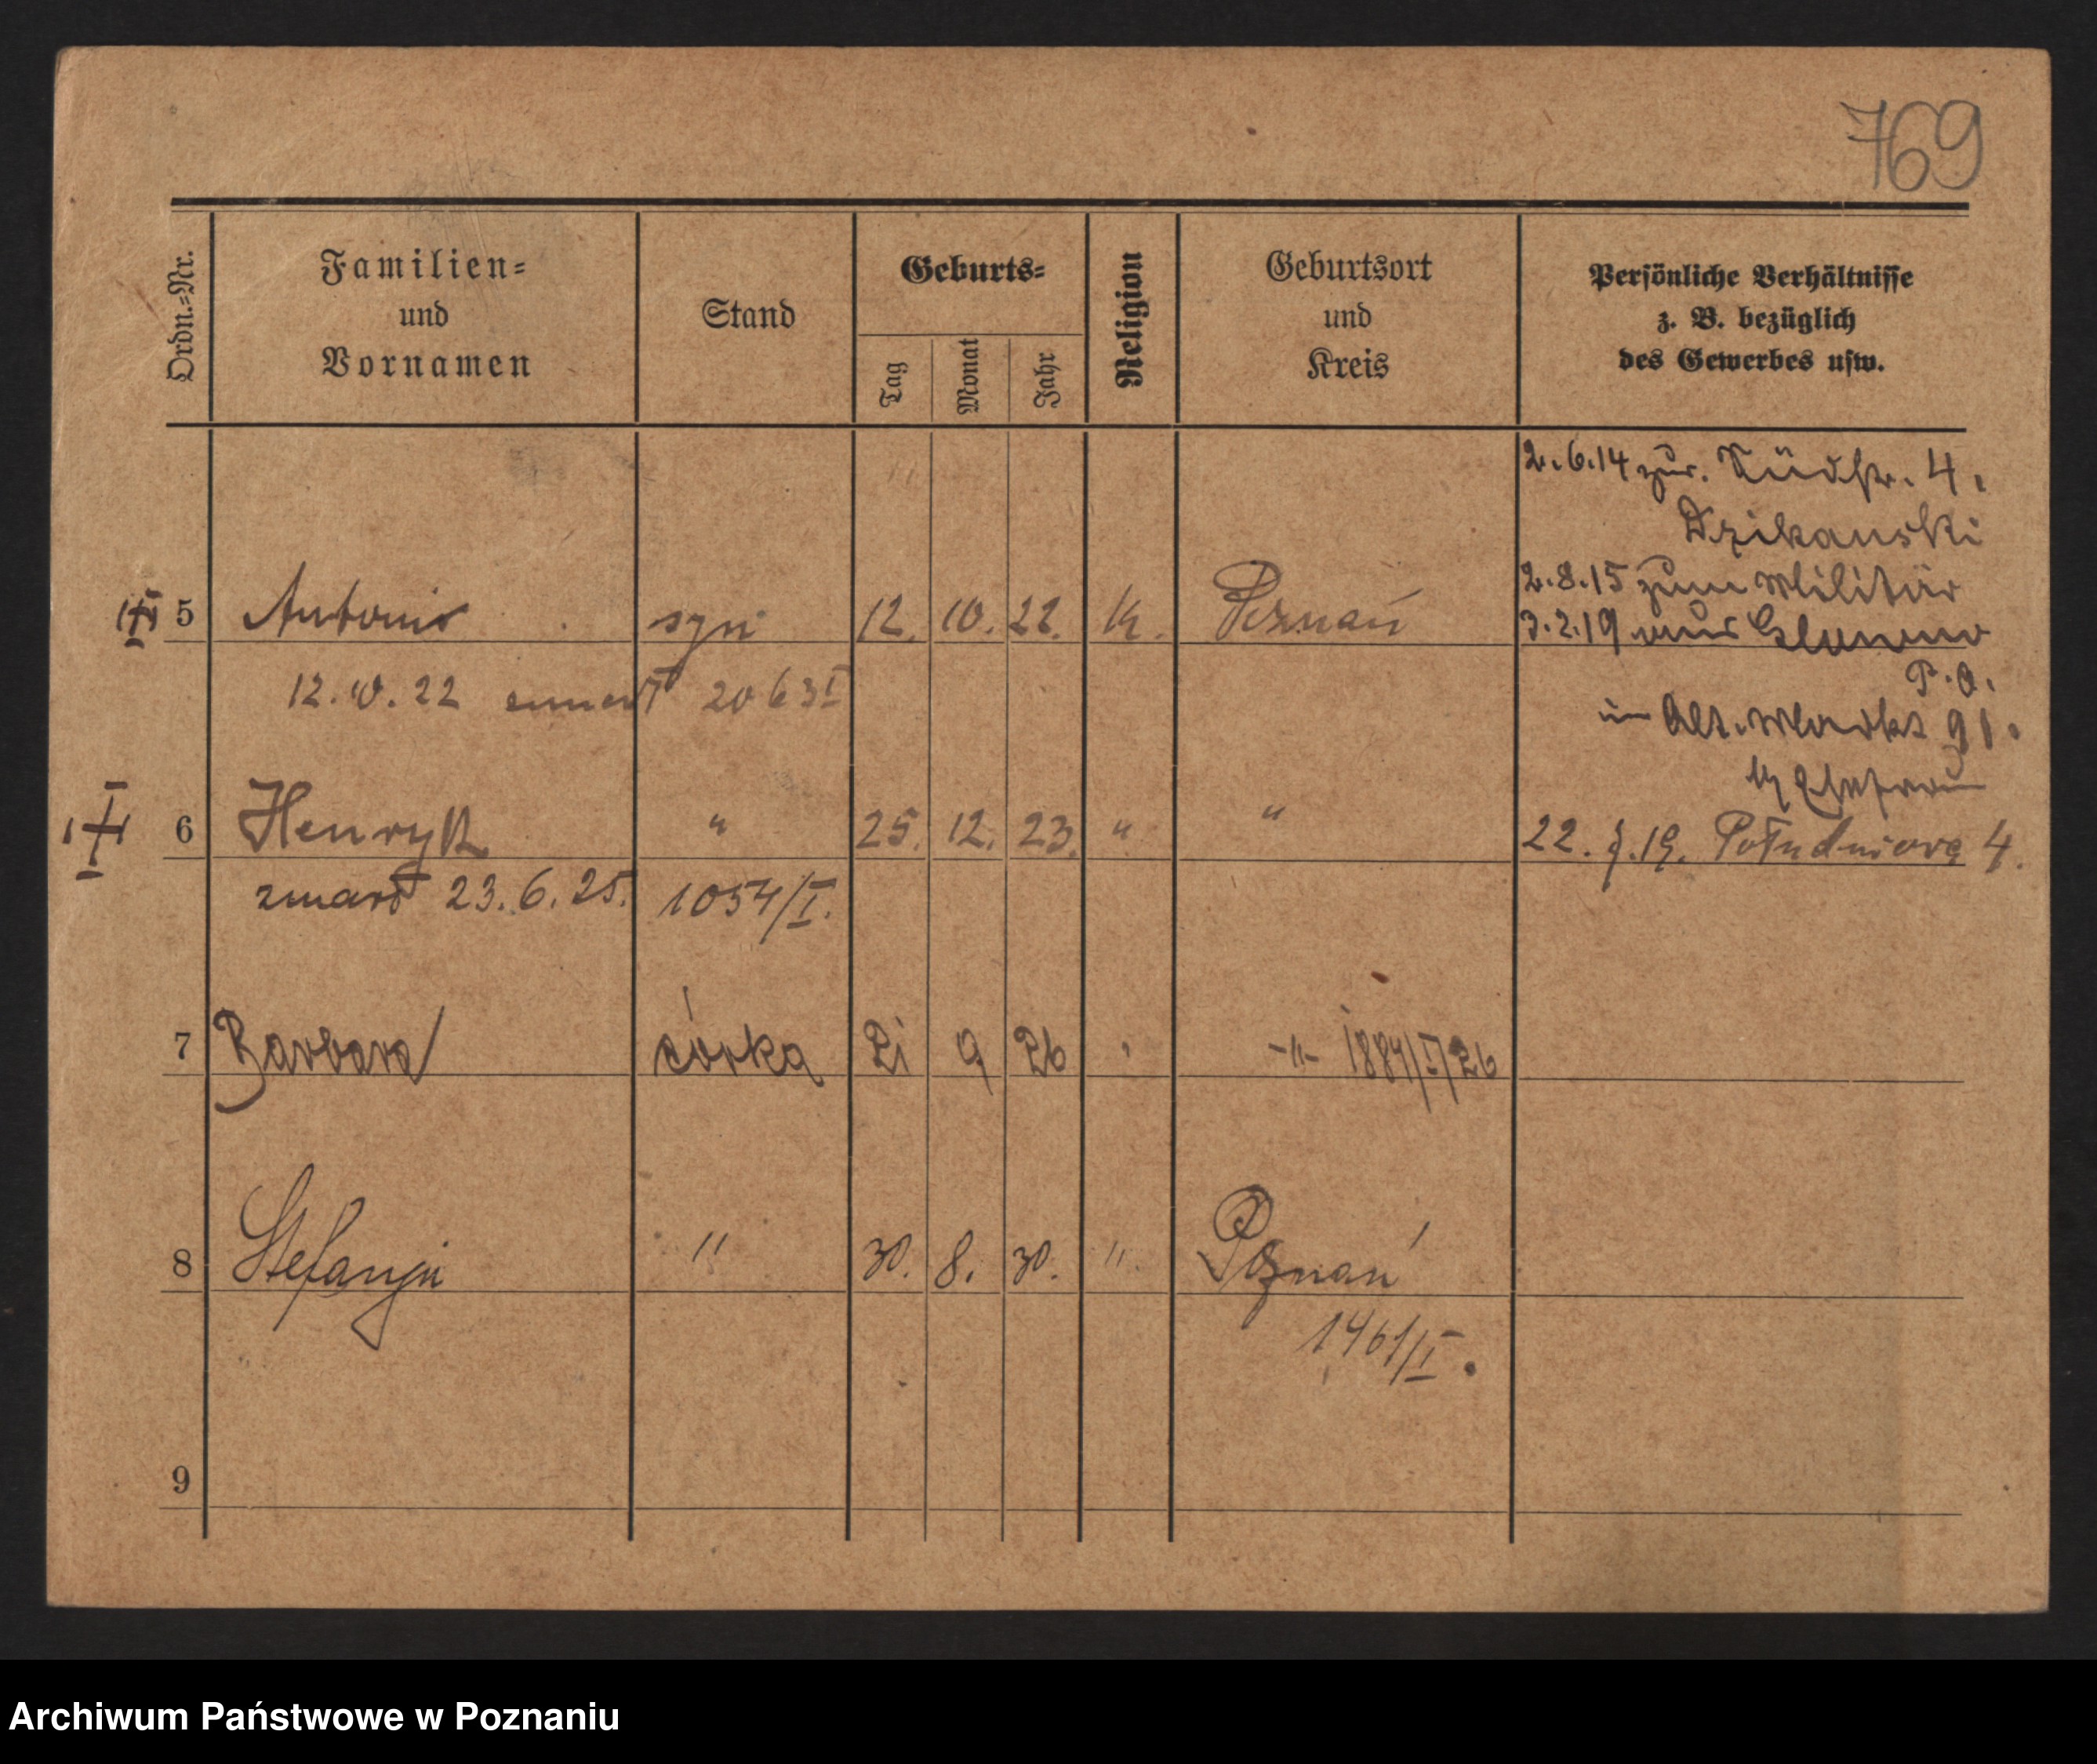 769
Ordn.=Nr.
Familien=
und
Vornamen
Stand
Geburts=
Tag
Monat
Jahr
Religion
Geburtsort
und
Kreis
Persönliche Verhältnisse
z. B. bezüglich
des Gewerbes usw.
2.6.14 zur. Südstr. 4.
Dzikanski
2.8.15 zum Militär
5 Antoni syn 12. 10. 22. k. Poznań
3.2.19 aus
P.O.
12.10.22 2063 I
in Alt. Markt 91.
6 Henryk " 25. 12. 23. " "
22. 7.19. Południowa 4.
zmarł 23.6.25. 1054/I.
7 Barbara córka 21 9 26 -"- 1884/I/26
8 Stefanja " 30. 8. 30. " Poznań
1461/I.
9
Archiwum Państwowe w Poznaniu